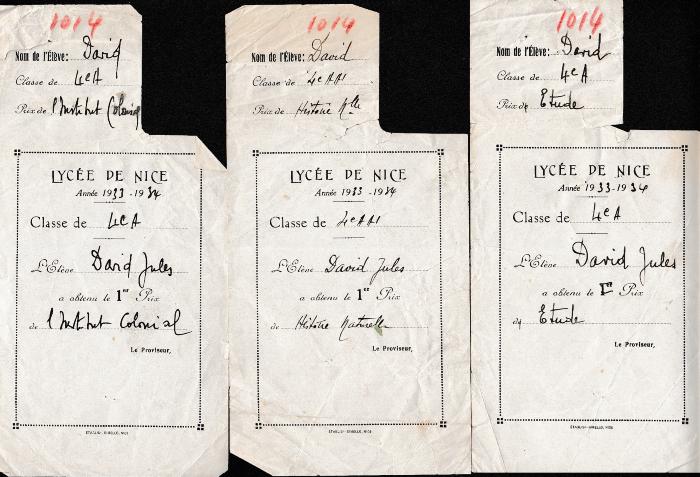 1014
Nom de l'Élève: David
Classe de 4e A
Prix de l'Institut Colonial
LYCÉE DE NICE
Année 1933-1934
Classe de 4e A
L'Elève David Jules
a obtenu le 1er Prix
de l'Institut Colonial
Le Proviseur,
1014
Nom de l'Élève: David
Classe de 4e AA1
Prix de Histoire Nlle
LYCÉE DE NICE
Année 1933-1934
Classe de 4e AA1
L'Elève David Jules
a obtenu le 1er Prix
de Histoire Naturelle
Le Proviseur,
1014
Nom de l'Élève: David
Classe de 4e A
Prix de Etude
LYCÉE DE NICE
Année 1933-1934
Classe de 4e A
L'Elève David Jules
a obtenu le 1er Prix
de Etude
Le Proviseur,